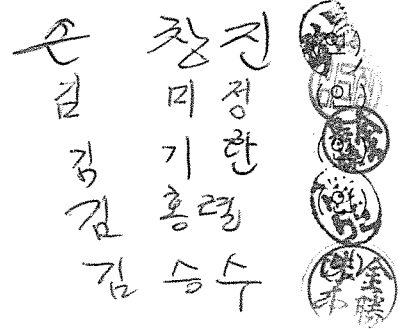 손 창진
김 미정
김 기한
김 홍렬
김 승수